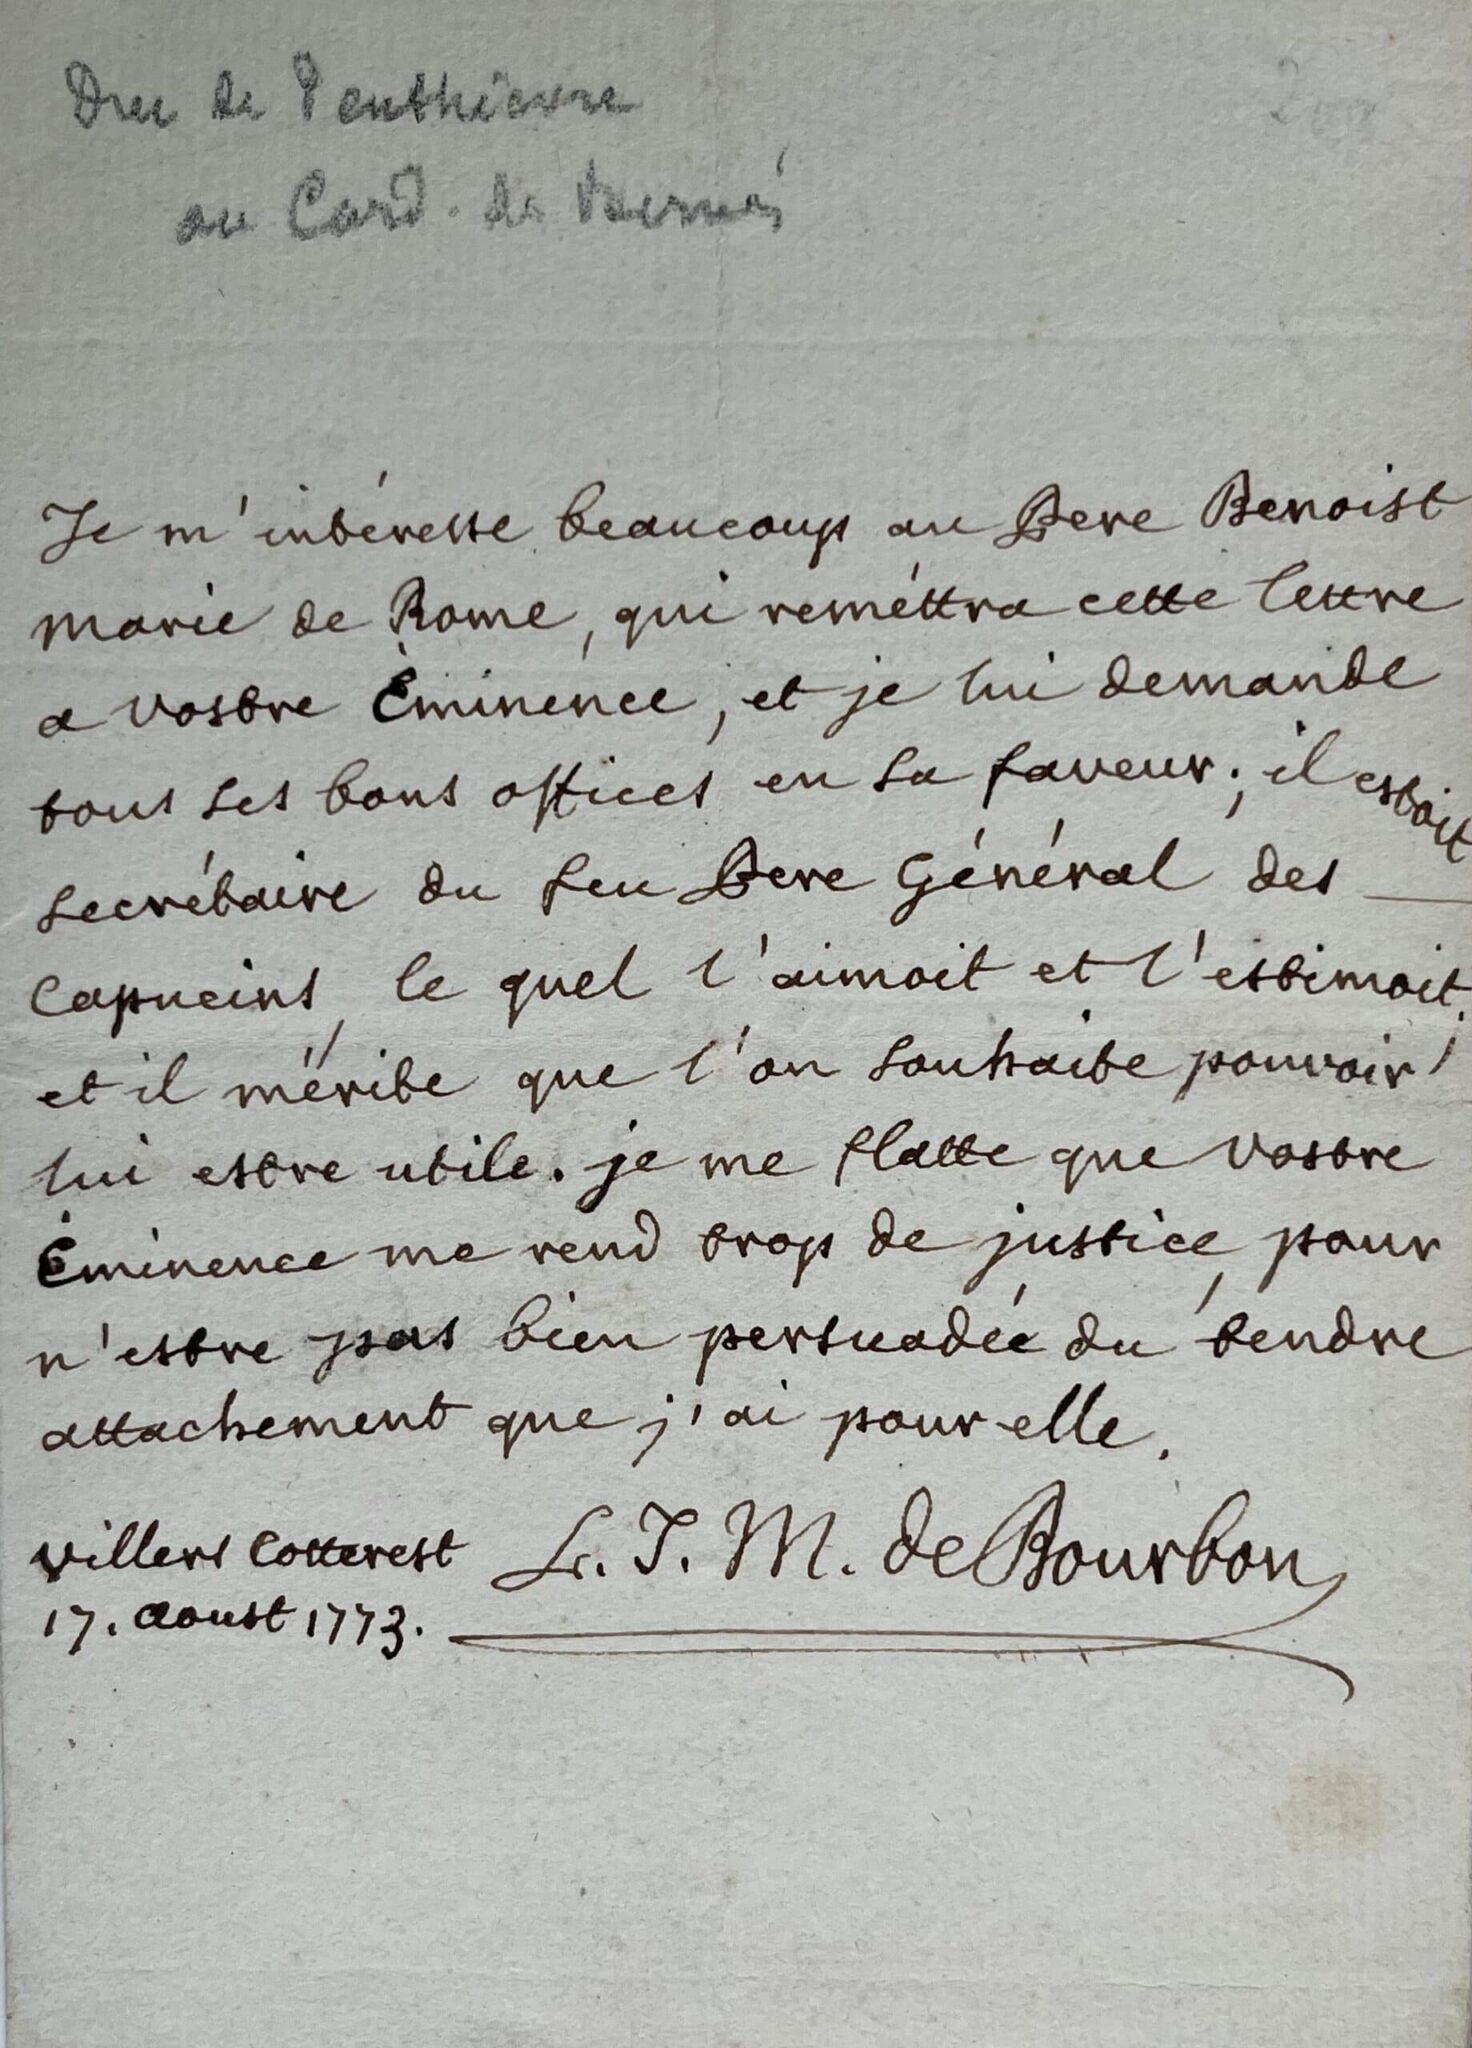 Duc de Penthièvre
au Card. de Bernis
Je m'intéresse beaucoup au Pere Benoist
Marie de Rome, qui reméttra cette lettre
a vostre Éminence, et je lui demande
tous ses bons offices en sa faveur; il estoit
secrétaire du feu Pere Général des
Capucins, le quel l'aimoit et l'estimoit,
et il mérite que l'on souhaite pouvoir
lui estre utile. je me flatte que vostre
Éminence me rend trop de justice, pour
n'estre pas bien persuadée du tendre
attachement que j'ai pour elle.
Villers Cotterest L. J. M. de Bourbon
17. Aoust 1773.